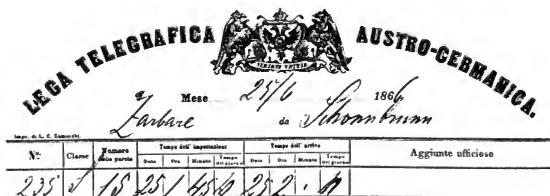 LEGA TELEGRAFICA AUSTRO-GERMANICA.
VIRIBUS UNITIS
a Mese 25/6 1866
Zarbare da Schoenbrunn
Impr. di L. C. Zamarski.
N.º Classe Numero delle parole Tempo dell' impostazione Tempo dell' arrivo Aggiunte ufficiose
Data Ora Minute Tempo del giorno Data Ora Minute Tempo del giorno
235 S 15 25 1 45 25 2